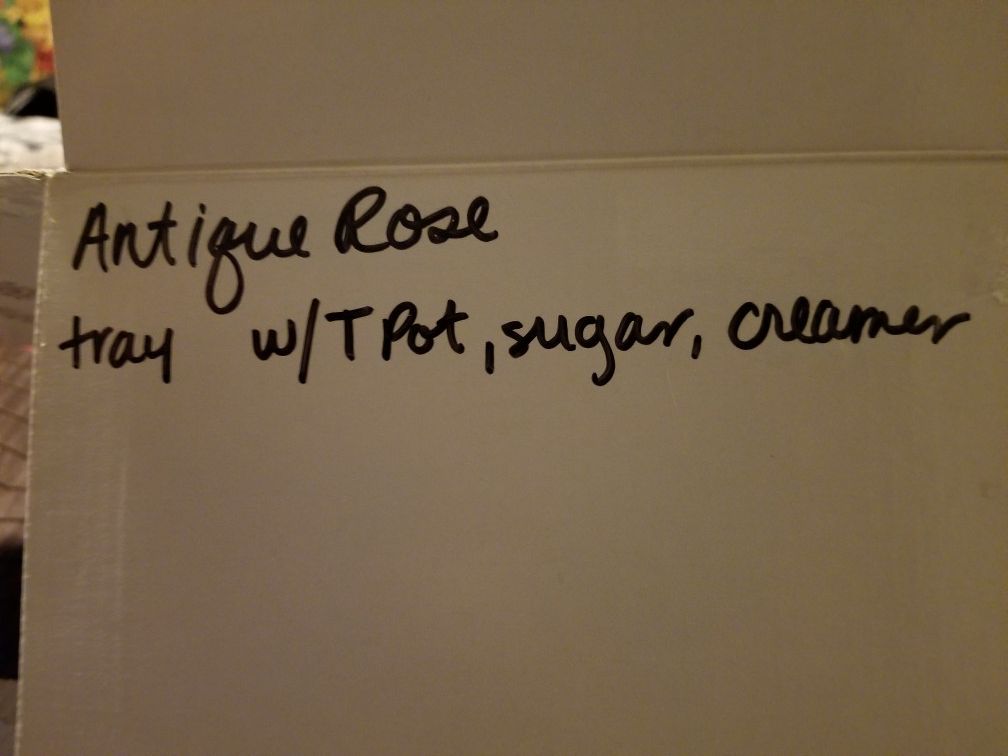 Antique Rose
tray w/T Pot, sugar, creamer